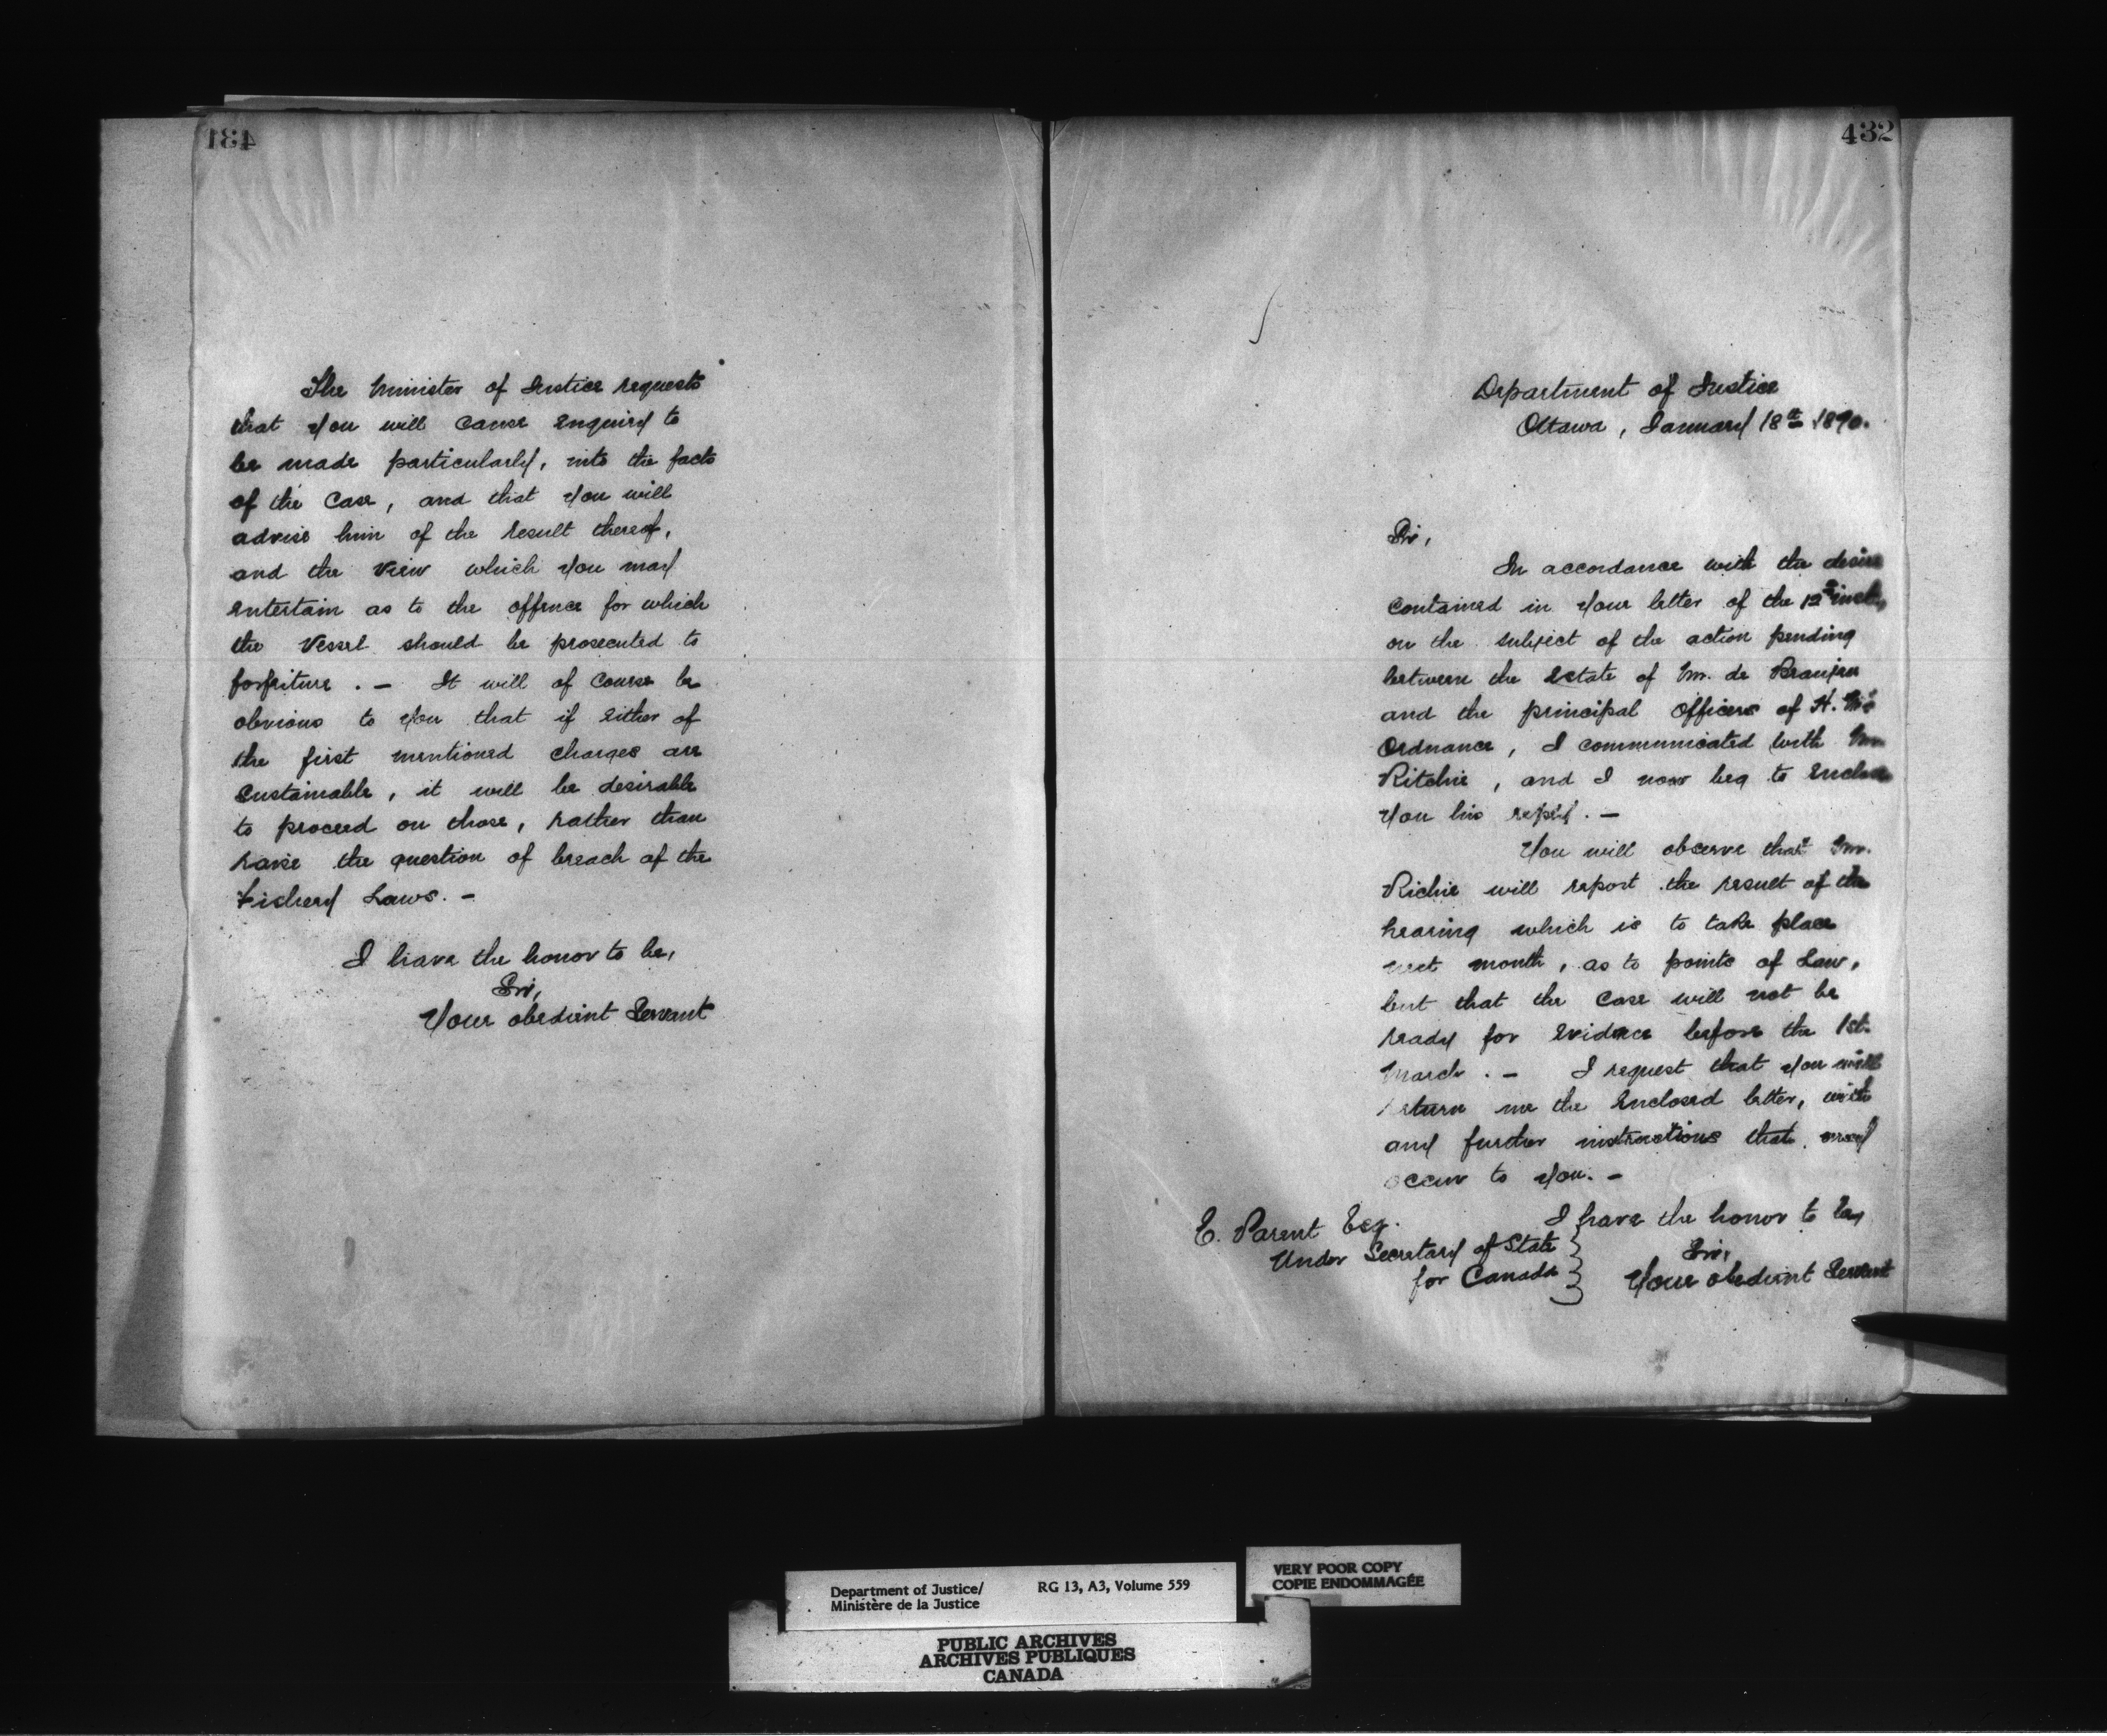 431
The Minister of Justice requests
that you will cause enquiry to
be made particularly, into the facts
of the case, and that you will
advise him of the result thereof,
and the view which you may
entertain as to the offence for which
the vessel should be prosecuted to
forfeiture . — It will of course be
obvious to you that if either of
the first mentioned charges are
sustainable, it will be desirable
to proceed on those, rather than
raise the question of breach of the
Fishery Laws. —
I have the honor to be,
Sir,
Your obedient Servant
432
Department of Justice
Ottawa, January 18th 1870.
Sir,
In accordance with the desire
contained in your letter of the 12th inst,
on the subject of the action pending
between the Estate of Mr. de Beaujeu
and the principal officers of H. M's
Ordnance, I communicated with Mr.
Ritchie, and I now beg to enclose
you his reply. —
You will observe that Mr.
Richie will report the result of the
hearing which is to take place
next month, as to points of Law,
but that the case will not be
ready for evidence before the 1st.
March . — I request that you will
return me the enclosed letter, with
any further instructions that may
occur to you. —
I have the honor to be,
Sir,
Your obedient Servant
E. Parent Esq.
Under Secretary of State
for Canada
Department of Justice/
Ministère de la Justice
RG 13, A3, Volume 559
VERY POOR COPY
COPIE ENDOMMAGÉE
PUBLIC ARCHIVES
ARCHIVES PUBLIQUES
CANADA